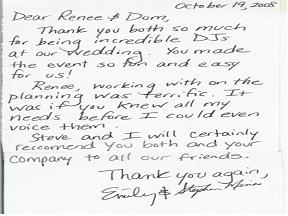 October 19, 2008
Dear Renee & Dom,
Thank you both so much
for being incredible DJs
at our wedding. You made
the event so fun and easy
for us!
Renee, working with on the
planning was terrific. It
was if you knew all my
needs before I could even
voice them.
Steve and I will certainly
reccomend you both and your
Company to all our friends.
Thank you again,
Emily & Stephen